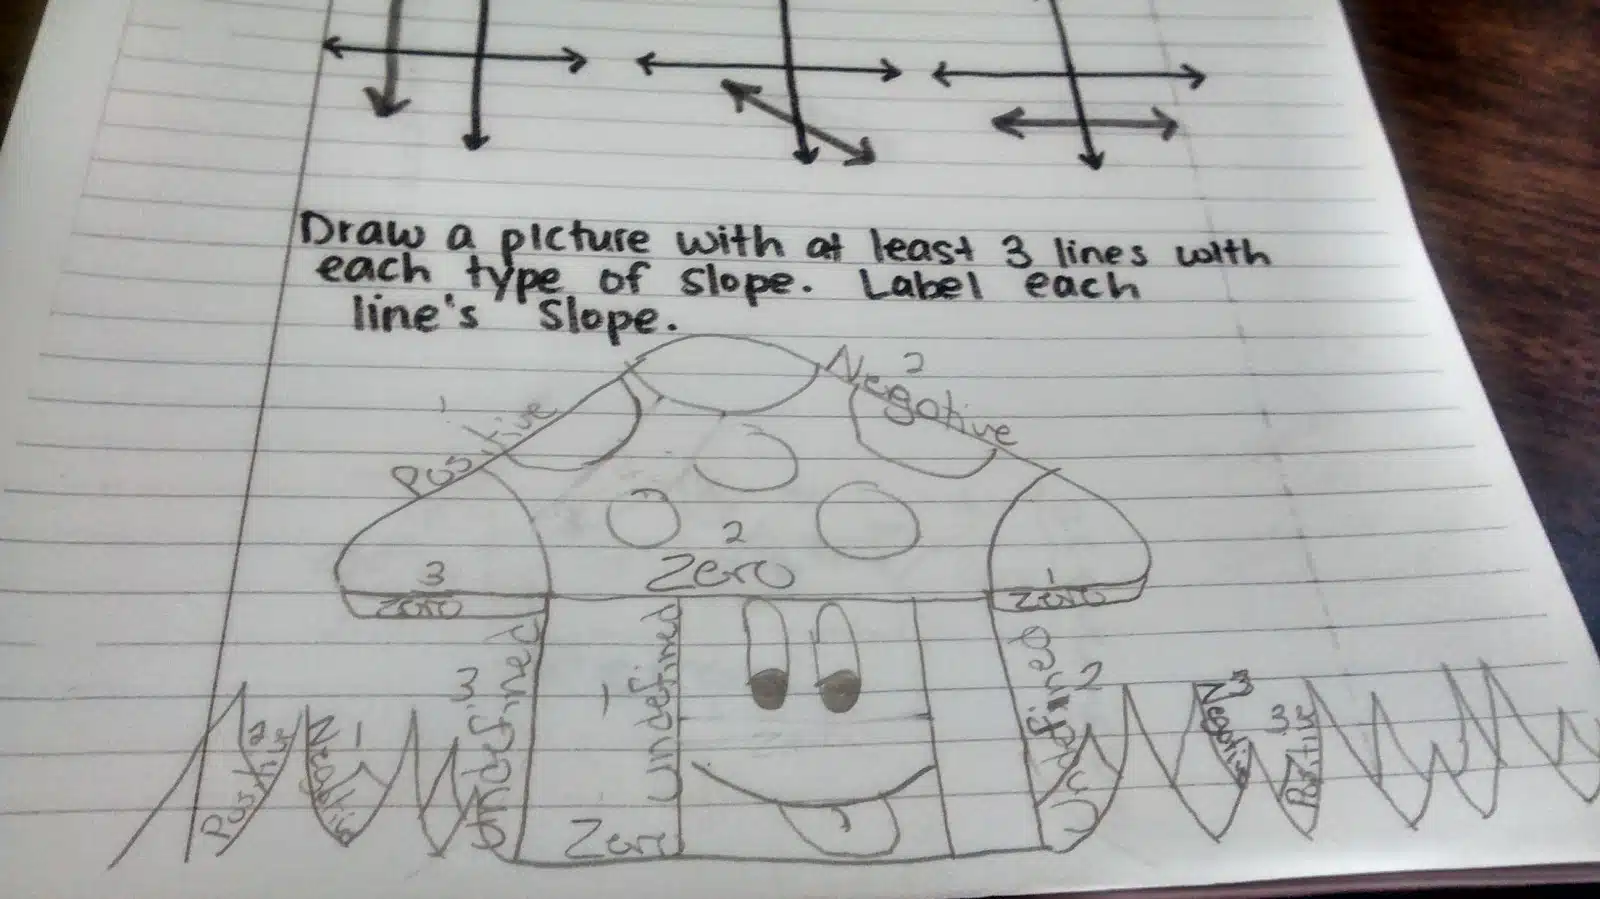 Draw a picture with at least 3 lines with
each type of slope. Label each
line's slope.
2
Negative
1
Positive
2
Zero
3
Zero
1
Zero
3
undefined
1
undefined
undefined
2
2
Positive
1
Negative
3
Negative
3
Positive
Zero